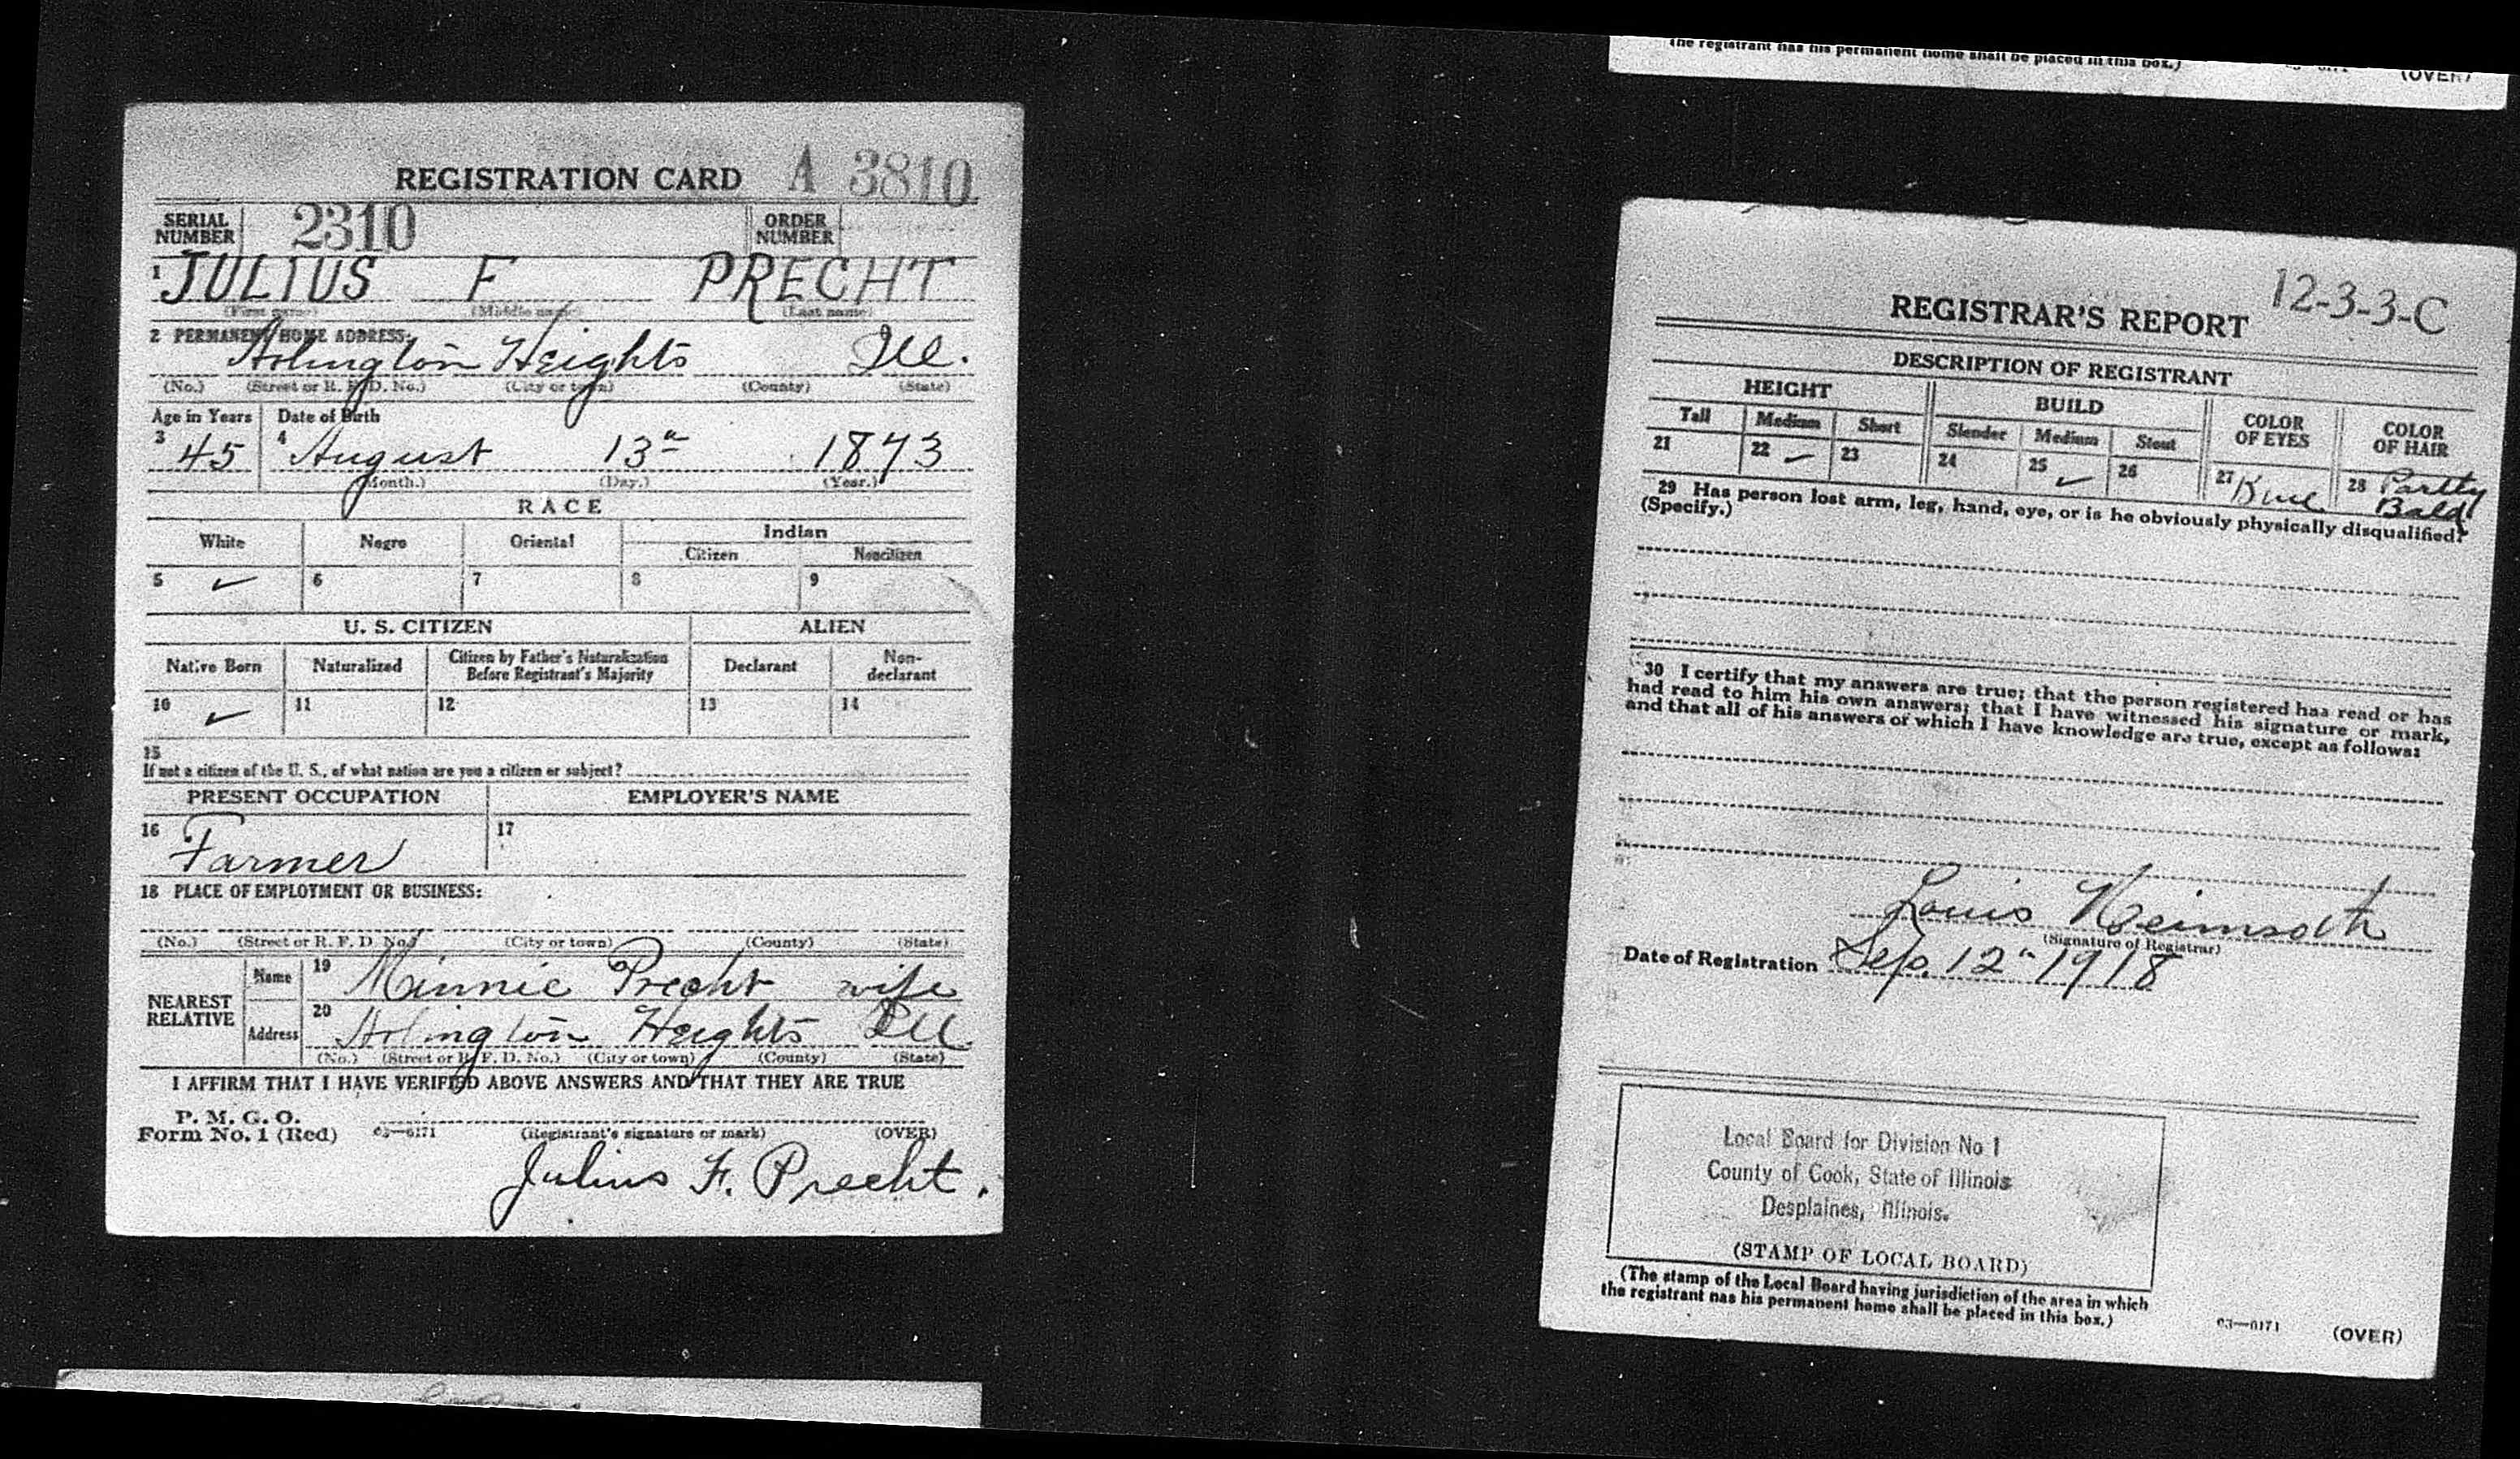 REGISTRATION CARD A 3810
SERIAL NUMBER 2310 ORDER NUMBER
1 JULIUS F PRECHT
(First name) (Middle name) (Last name)
2 PERMANENT HOME ADDRESS:
Arlington Heights Ill.
(No.) (Street or R. F. D. No.) (City or town) (County) (State)
Age in Years Date of Birth
3 45 4 August 13th 1873
(Month.) (Day.) (Year.)
RACE
White Negro Oriental Indian
Citizen Noncitizen
5 ✓ 6 7 8 9
U. S. CITIZEN ALIEN
Native Born Naturalized Citizen by Father's Naturalization Before Registrant's Majority Declarant Non-declarant
10 ✓ 11 12 13 14
15
If not a citizen of the U. S., of what nation are you a citizen or subject?
PRESENT OCCUPATION EMPLOYER'S NAME
16 Farmer 17
18 PLACE OF EMPLOYMENT OR BUSINESS:
(No.) (Street or R. F. D. No.) (City or town) (County) (State)
NEAREST RELATIVE
Name 19 Minnie Precht wife
Address 20 Arlington Heights Ill
(No.) (Street or R. F. D. No.) (City or town) (County) (State)
I AFFIRM THAT I HAVE VERIFIED ABOVE ANSWERS AND THAT THEY ARE TRUE
P. M. G. O.
Form No. 1 (Red) 03—6171 (Registrant's signature or mark) (OVER)
Julius F. Precht.
the registrant has his permanent home shall be placed in this box.) 03—6171 (OVER)
12-3-3-C
REGISTRAR'S REPORT
DESCRIPTION OF REGISTRANT
HEIGHT BUILD COLOR OF EYES COLOR OF HAIR
Tall Medium Short Slender Medium Stout
21 22 ✓ 23 24 25 ✓ 26 27 Blue 28 Partly Bald
29 Has person lost arm, leg, hand, eye, or is he obviously physically disqualified?
(Specify.)
30 I certify that my answers are true; that the person registered has read or has
had read to him his own answers; that I have witnessed his signature or mark,
and that all of his answers of which I have knowledge are true, except as follows:
Louis Heimsoth
(Signature of Registrar)
Date of Registration Sep. 12th 1918
Local Board for Division No 1
County of Cook, State of Illinois
Desplaines, Illinois.
(STAMP OF LOCAL BOARD)
(The stamp of the Local Board having jurisdiction of the area in which
the registrant has his permanent home shall be placed in this box.)
03—6171 (OVER)